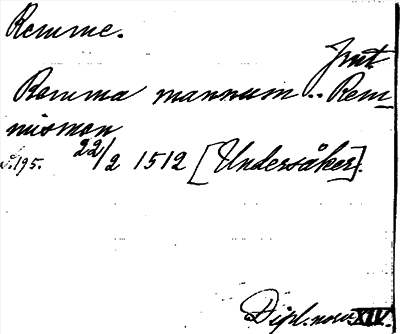 Remme.
Jmt
Romma mannum .. Rem-
mismon
S. 195. 22/2 1512 [Undersåker].
Dipl. norv. XIV.